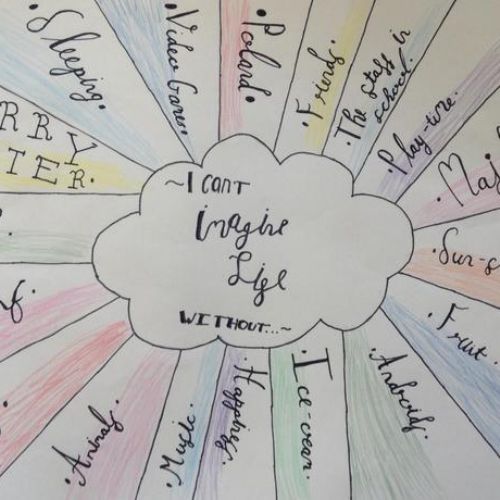 ~I CAN'T
Imagine
Life
WITHOUT...~
Sleeping.
Video Games.
Poland
Friends
The staff in
school.
Play-time.
Fruit.
Androids.
Ice-cream.
Happiness
Music.
Animals.